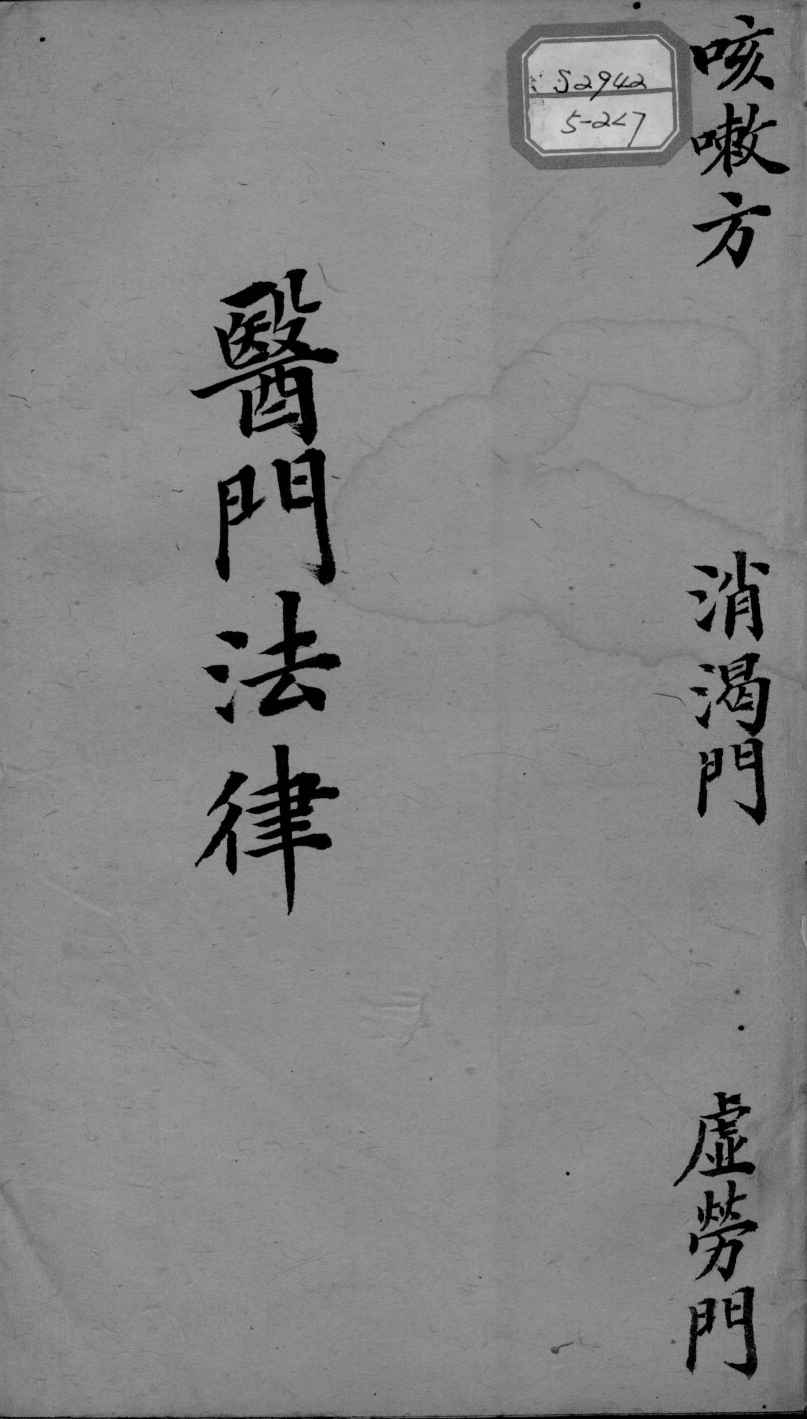 咳嗽方
消渴門
虛勞門
S2942
5-2<7
醫門法律